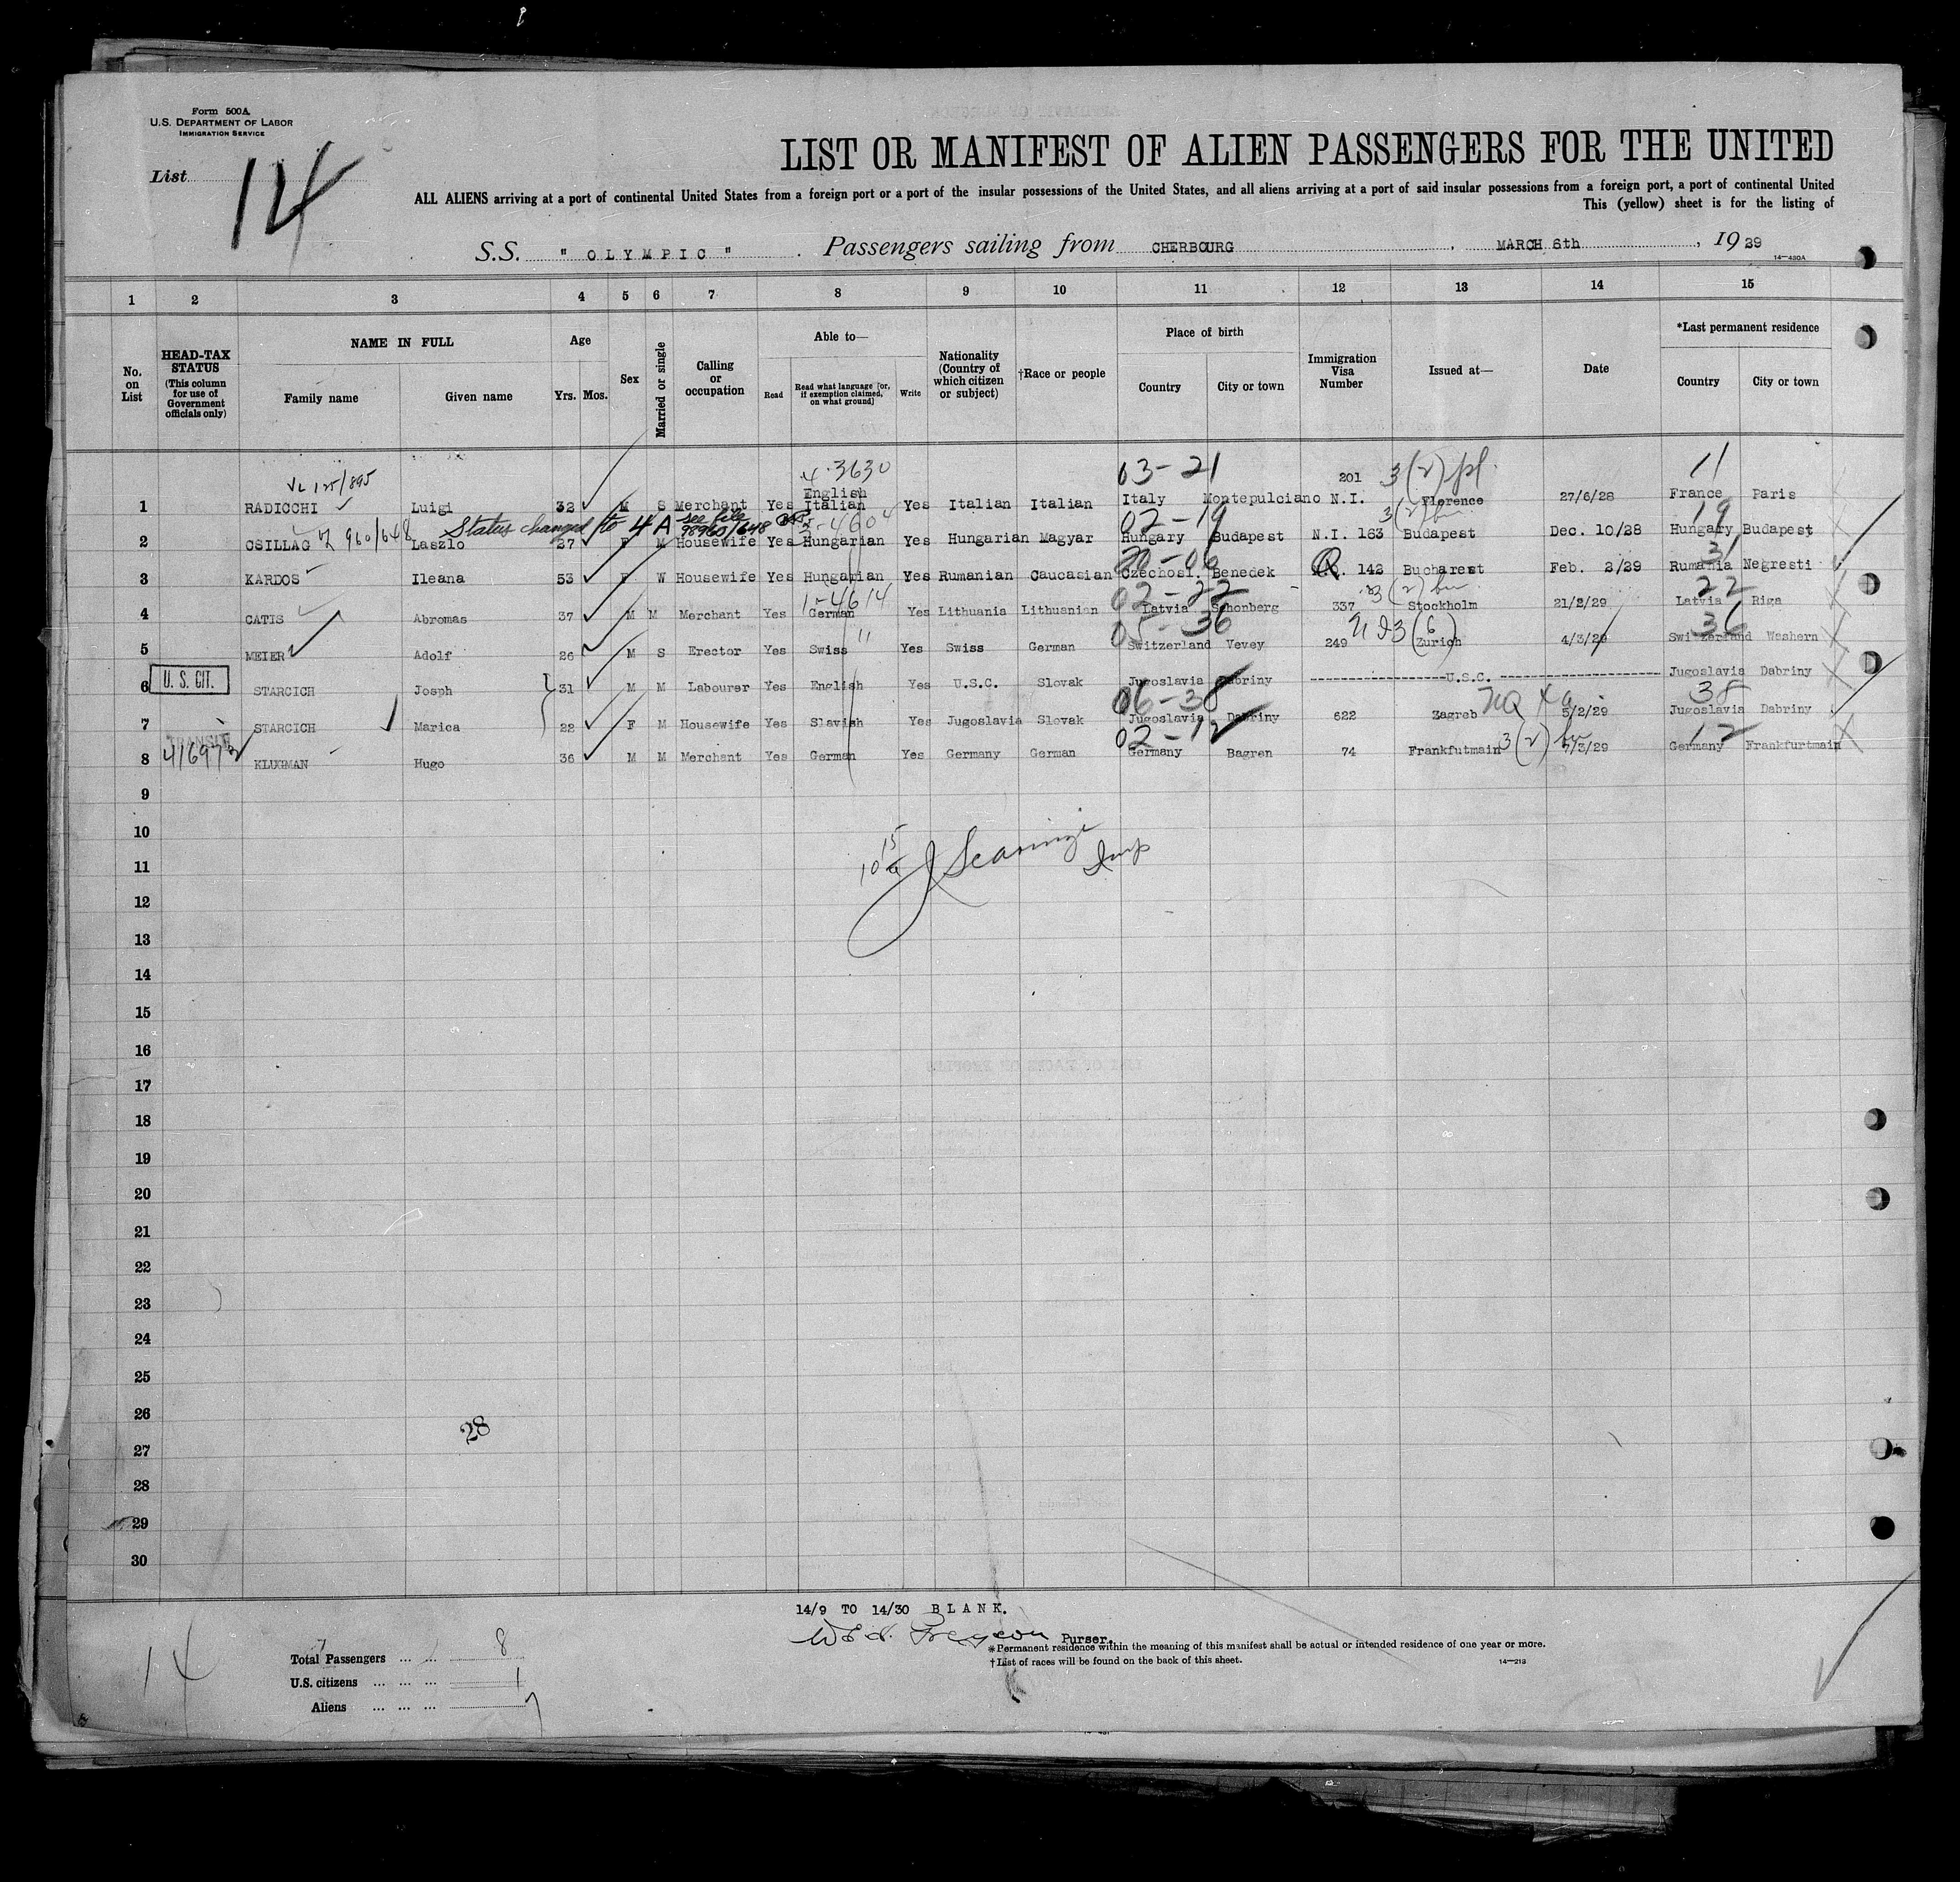 Form 500A
U.S. DEPARTMENT OF LABOR
IMMIGRATION SERVICE
List 14
LIST OR MANIFEST OF ALIEN PASSENGERS FOR THE UNITED
ALL ALIENS arriving at a port of continental United States from a foreign port or a port of the insular possessions of the United States, and all aliens arriving at a port of said insular possessions from a foreign port, a port of continental United
This (yellow) sheet is for the listing of
S.S. " OLYMPIC " . Passengers sailing from CHERBOURG , MARCH 6th , 19 29
14—480A
1 2 3 4 5 6 7 8 9 10 11 12 13 14 15
No. on List
HEAD-TAX STATUS (This column for use of Government officials only)
NAME IN FULL
Family name Given name
Age
Yrs. Mos.
Sex
Married or single
Calling or occupation
Able to—
Read Read what language [or, if exemption claimed, on what ground] Write
Nationality (Country of which citizen or subject)
†Race or people
Place of birth
Country City or town
Immigration Visa Number
Issued at—
Date
*Last permanent residence
Country City or town
125/895 4-3630 03-21 3(2) 11
English 201
1 RADICCHI Luigi 32 M S Merchant Yes Italian Yes Italian Italian Italy Montepulciano N.I. Florence 27/6/28 France Paris
960/648 Status changed to 4 A see file 98960/648 4604 02-19 3(2) 19
2 CSILLAG Laszlo 27 F M Housewife Yes Hungarian Yes Hungarian Magyar Hungary Budapest N.I. 163 Budapest Dec. 10/28 Hungary Budapest
06 31
3 KARDOS Ileana 53 F W Housewife Yes Hungarian Yes Rumanian Caucasian Czechosl. Benedek 142 Bucharest Feb. 2/29 Rumania Negresti
1-4614 02-22 3(2) 22
4 CATIS Abromas 37 M M Merchant Yes German Yes Lithuania Lithuanian Latvia Schonberg 337 Stockholm 21/2/29 Latvia Riga
" 05-36 3(6) 36
5 MEIER Adolf 26 M S Erector Yes Swiss Yes Swiss German Switzerland Vevey 249 Zurich 4/3/29 Switzerland Washern
U. S. CIT.
6 STARCICH Josph 31 M M Labourer Yes English Yes U.S.C. Slovak Jugoslavia Dabriny U.S.C. Jugoslavia Dabriny
06-38 NQ 38
7 STARCICH Marica 22 F M Housewife Yes Slavish Yes Jugoslavia Slovak Jugoslavia Dabriny 622 Zagreb 5/2/29 Jugoslavia Dabriny
TRANSIT 02-12 3(2) 12
8 KLUGMAN Hugo 36 M M Merchant Yes German Yes Germany German Germany Bagren 74 Frankfutmain 7/3/29 Germany Frankfurtmain
9
10
11
12
13
14
15
16
17
18
19
20
21
22
23
24
25
26
28
27
28
29
30
14/9 TO 14/30 BLANK.
Purser.
*Permanent residence within the meaning of this manifest shall be actual or intended residence of one year or more.
†List of races will be found on the back of this sheet.
14—213
14
Total Passengers ... ... 8
U.S. citizens ... ... ... 1
Aliens ... ... ... 7